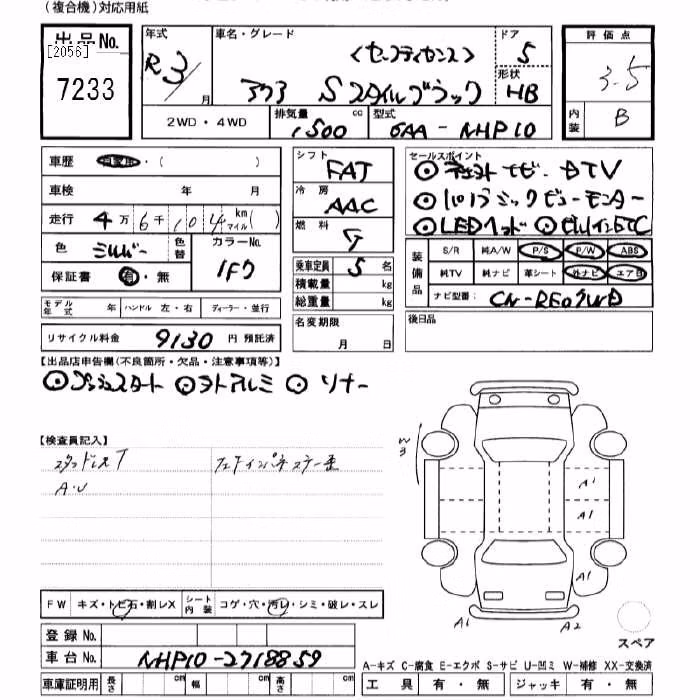 (複合機)対応用紙
出品No.
[2056]
7233
年式 R3 月
車名・グレード
〈セーフティセンス〉
アクア Sスタイルブラック
ドア 5
形状 HB
評価点
3.5
内装 B
2WD・4WD
排気量 1500 cc
型式 6AA-NHP10
車歴 自家用・( )
車検 年 月
走行 4万6千104 km マイル( )
色 シルバー
色替
カラーNo. 1F7
保証書 有・無
モデル年式 年 ハンドル 左・右 ディーラー・並行
リサイクル料金 9130 円 預託済
シフト FAT
冷房 AAC
燃料 G
乗車定員 5 名
積載量 kg
総重量 kg
名変期限
月 日
セールスポイント
◎フルセグナビ・DTV
◎パノラミックビューモニター
◎LEDヘッド ◎ビルトインETC
装備品
S/R 純A/W P/S P/W ABS
純TV 純ナビ 革シート 外ナビ エアB
ナビ型番:
後日品
【出品店申告欄(不良箇所・欠品・注意事項等)】
◎プッシュスタート ◎ソトアルミ ◎ソナー
【検査員記入】
スタッドレスT
A・U
F W キズ・トビ石・割レX
シート内装 コゲ・穴・汚レ・シミ・破レ・スレ
登録No.
車台No. NHP10-2718859
車庫証明用 長さ cm 幅 cm 高さ cm
W3
A1
A1
A1
A1
A2
スペア
A-キズ C-腐食 E-エクボ S-サビ U-凹ミ W-補修 XX-交換済
工具 有・無 ジャッキ 有・無